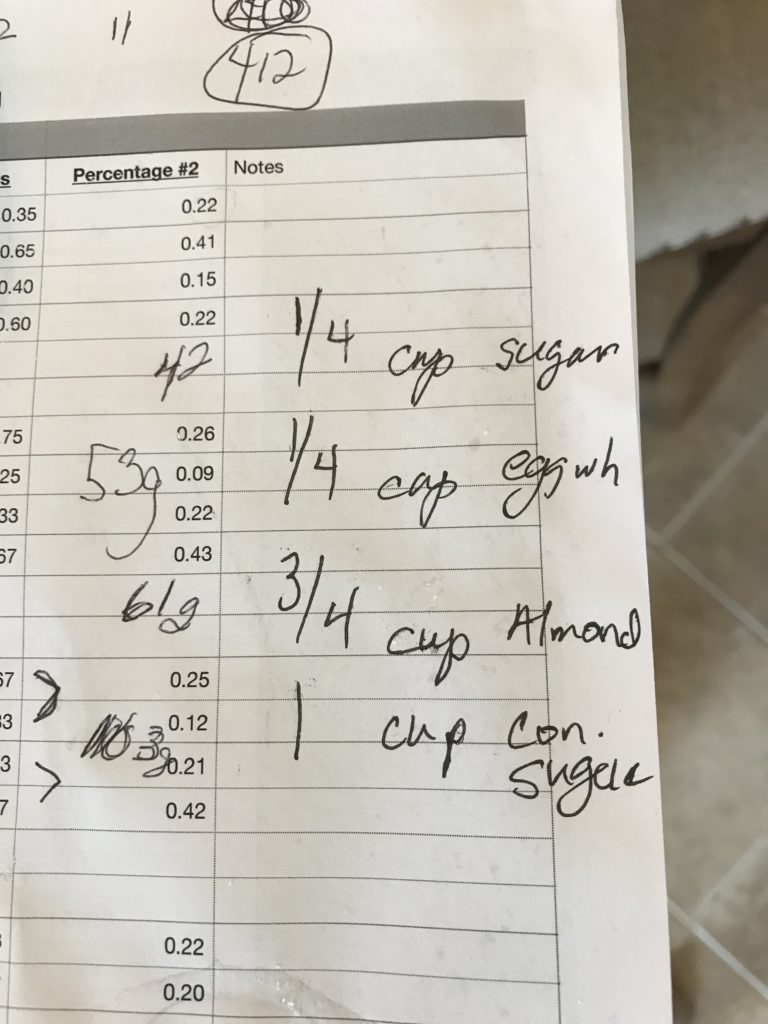 11
412
s Percentage #2 Notes
0.35 0.22
0.65 0.41
0.40 0.15
0.60 0.22 1/4 cup sugar
42
75 0.26 1/4 cup egg wh
25 53g 0.09
33 0.22
67 0.43 3/4 cup Almond
61g
67 > 0.25 1 cup con.
33 0.12 sugar
3 > 0.21
7 0.42
0.22
0.20